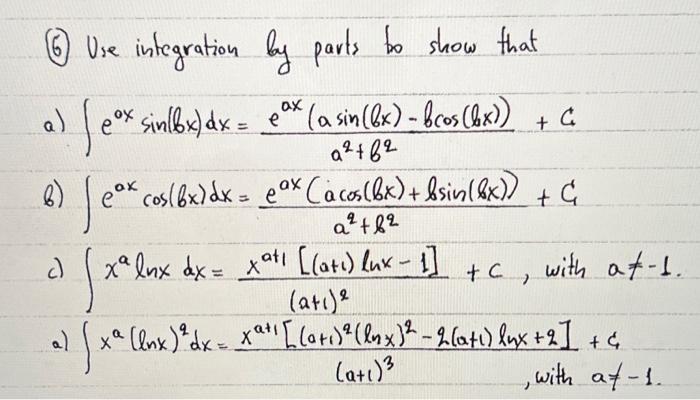 ⑥ Use integration by parts to show that
a) ∫ e^{ax} sin(bx) dx = e^{ax} (a sin(bx) - b cos(bx)) / (a² + b²) + C
b) ∫ e^{ax} cos(bx) dx = e^{ax} (a cos(bx) + b sin(bx)) / (a² + b²) + C
c) ∫ x^a ln x dx = x^{a+1} [(a+1) ln x - 1] / (a+1)² + C, with a ≠ -1.
a) ∫ x^a (ln x)² dx = x^{a+1} [(a+1)² (ln x)² - 2(a+1) ln x + 2] / (a+1)³ + C
, with a ≠ -1.